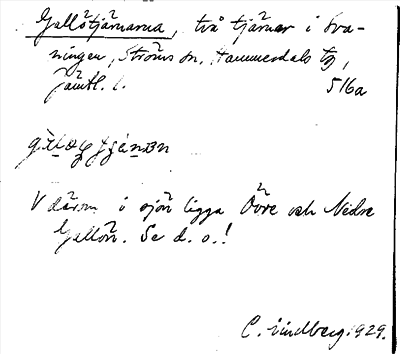 Gallötjärnarna, två tjärnar i Sva-
ningen, Ströms sn. Hammerdals tg,
Jämtl. l. 516a
V därom i sjön ligga Övre och Nedre
Gallön. Se d. o.!
C. Lindberg. 1929.